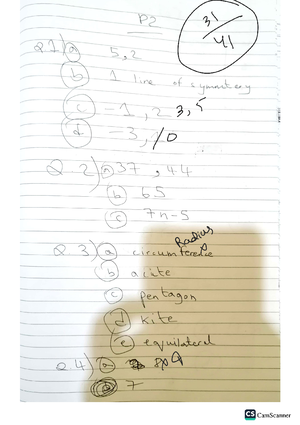 P2
31/41
Q.1) a 5, 2
b 1 line of symmetry
c -1, 2 3, 5
d =3, 10
Q.2) a 37, 44
b 65
c 7n-5
Radius
Q.3) a circumference
b acute
c pentagon
d kite
e equilateral
Q.4) a 809
7
CS CamScanner